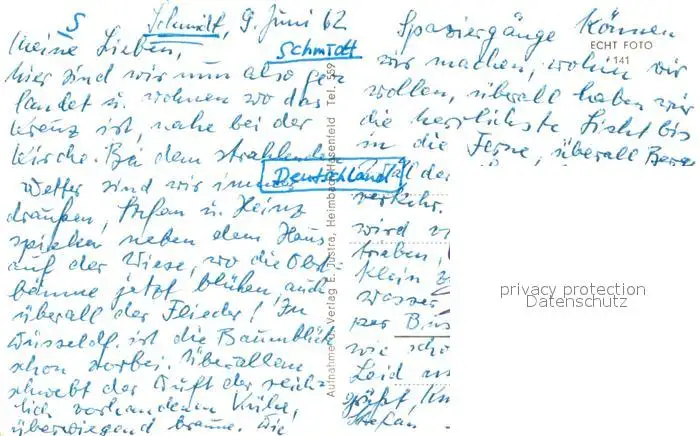 S
Schmidt, 9. Juni 62
Meine Lieben,
Schmidt
hier sind wir nun also ge-
landet u. wohnen wo das
Kreuz ist, nahe bei der
Kirche. Bei dem strahlenden
Wetter sind wir immer
draußen, Stefan u. Heinz
spielen neben dem Haus
auf der Wiese, wo die Obst-
bäume jetzt blühen, auch
überall der Flieder! In
Düsseld. ist die Baumblüte
schon vorbei. Über allem
schwebt der Duft der reich-
lich vorhandenen Kühe,
überwiegend braune. Die
Deutschland
Aufnahme u. Verlag E. Justra, Heimbach-Hasenfeld Tel. 359
Spaziergänge können
wir machen, wohin wir
wollen, überall haben wir
die herrlichste Sicht bis
in die Ferne, überall Berge
all der
verkehr.
wird
trieben,
Klein
wasser
per Bus
wie schö
Leid
grüßt,
Stefan
ECHT FOTO
141
privacy protection
Datenschutz